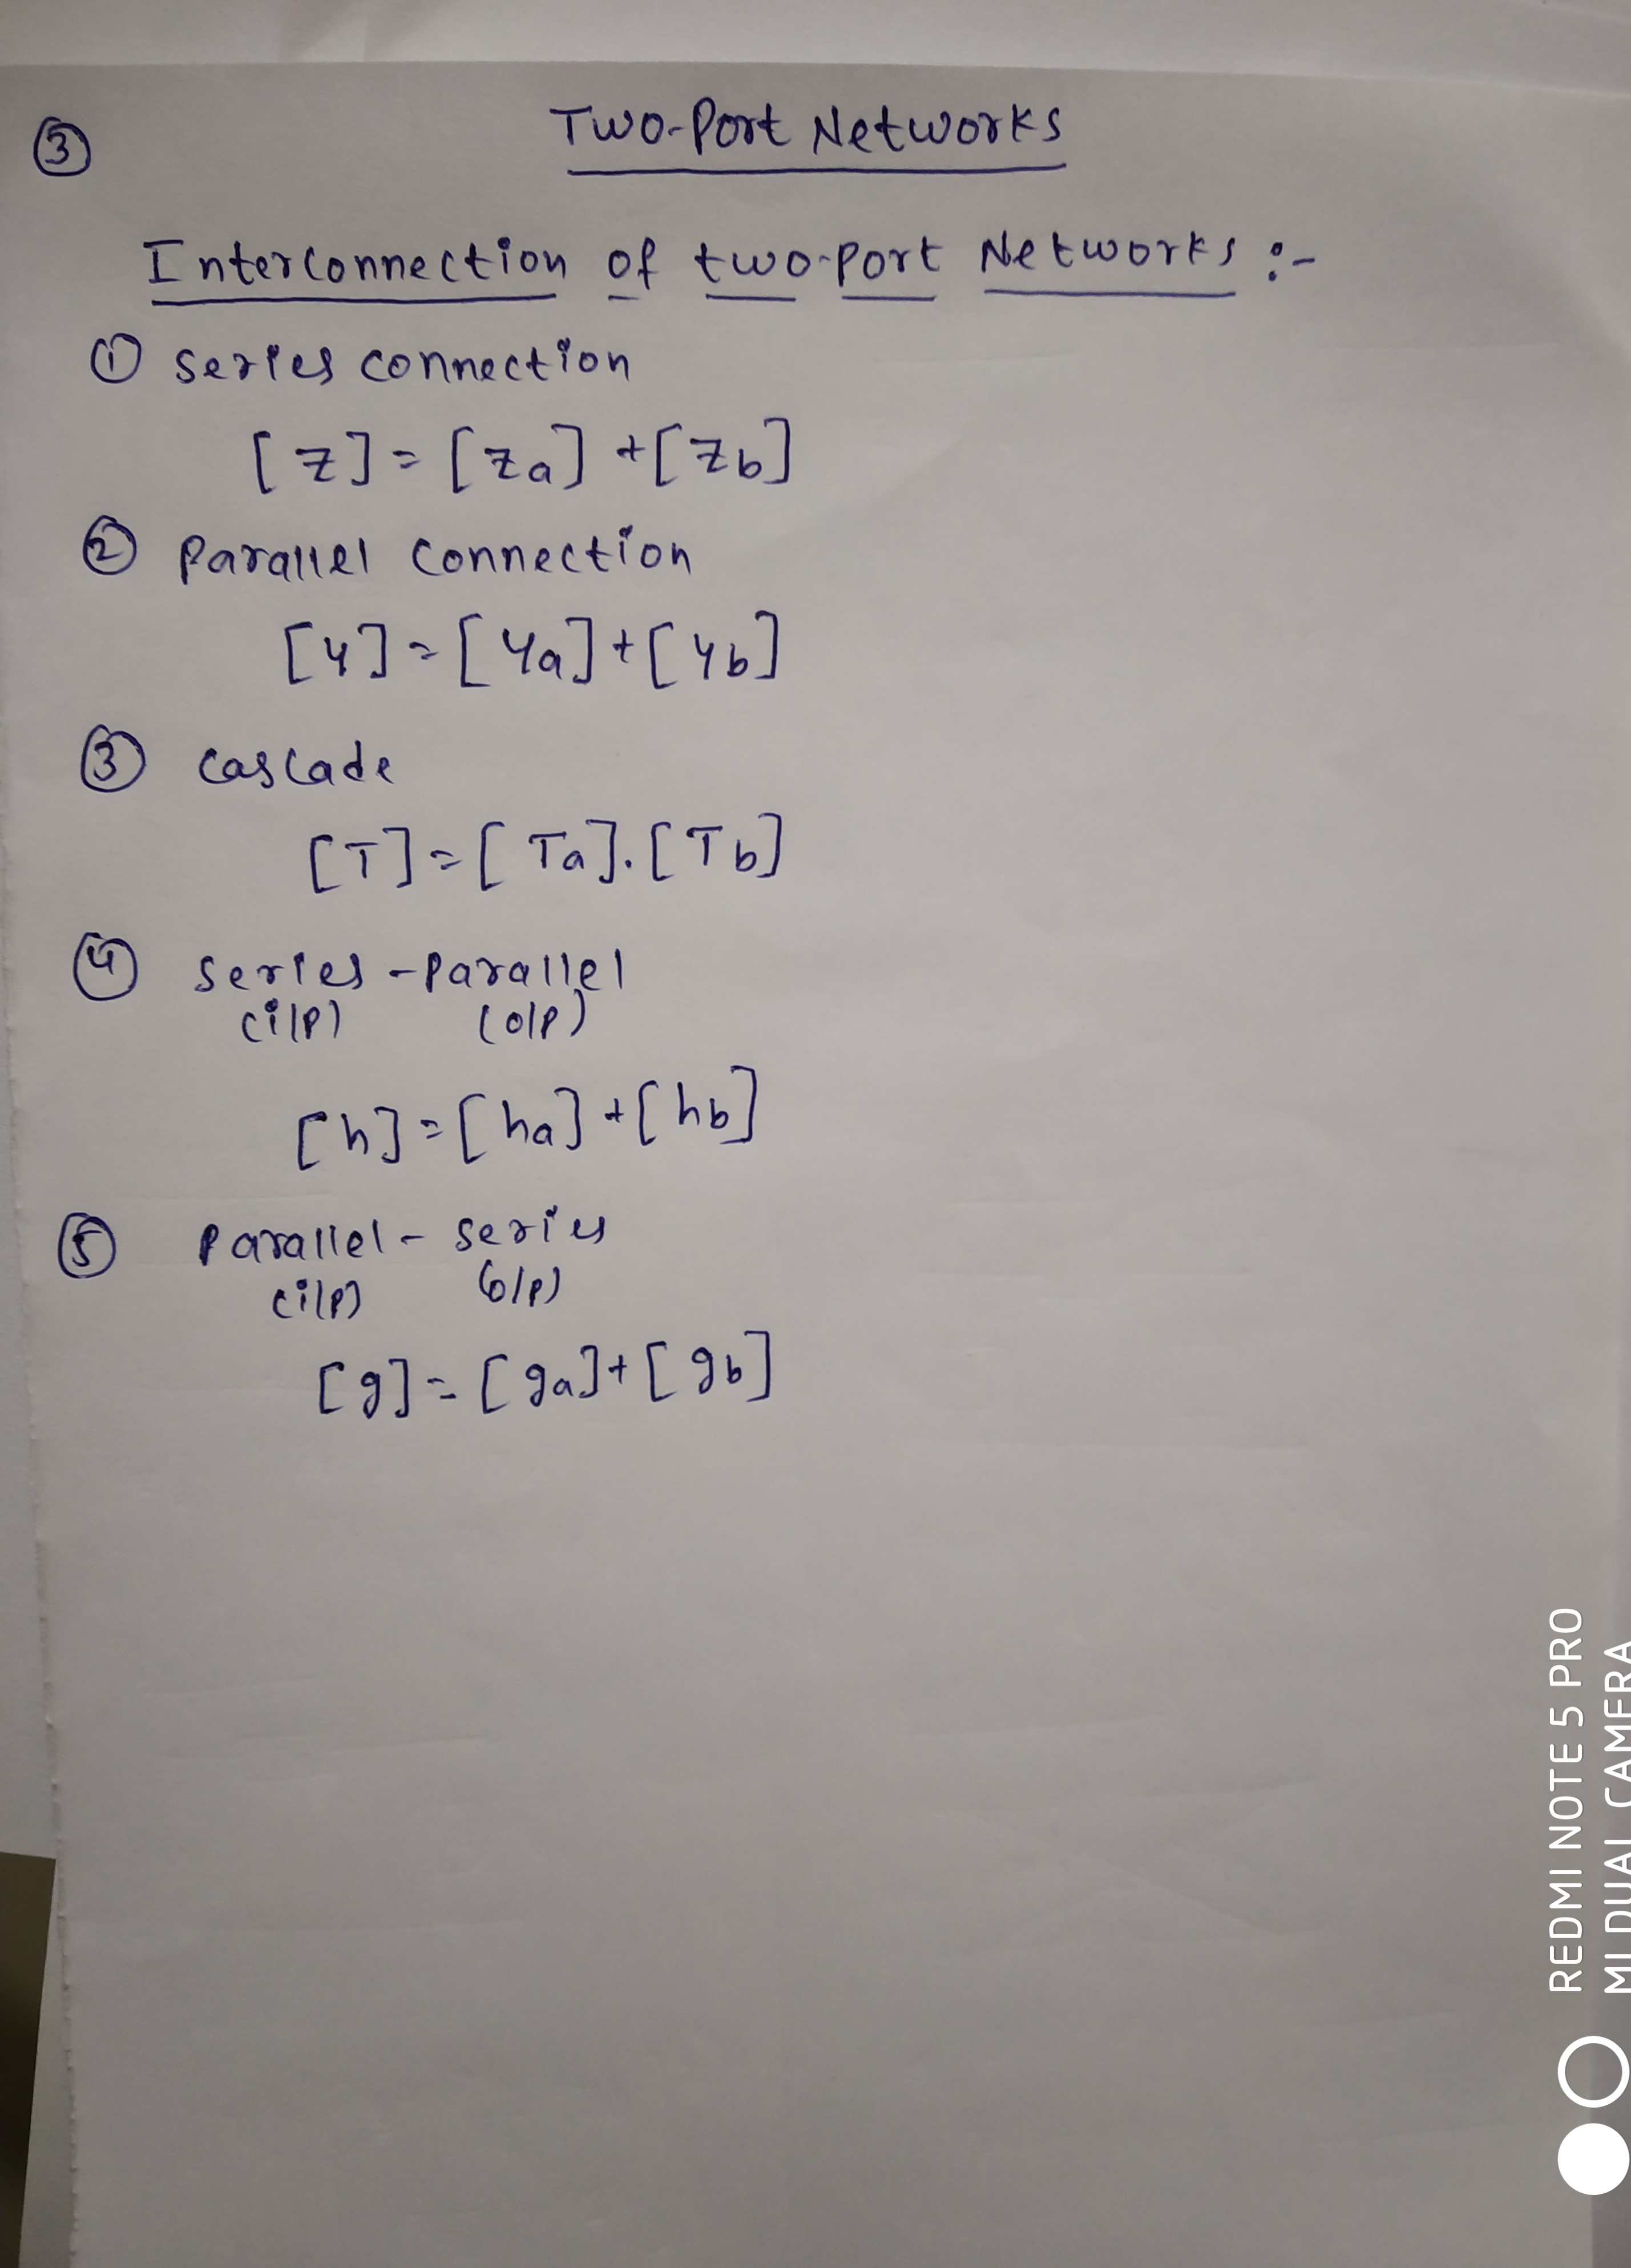 ③
Two-Port Networks
Interconnection of two-port Networks :-
① series connection
[z] = [za] + [zb]
② Parallel connection
[y] = [ya] + [yb]
③ cascade
[T] = [Ta].[Tb]
④ series - parallel
(i/p) (o/p)
[h] = [ha] + [hb]
⑤ parallel - series
(i/p) (o/p)
[g] = [ga] + [gb]
REDMI NOTE 5 PRO
MI DUAL CAMERA